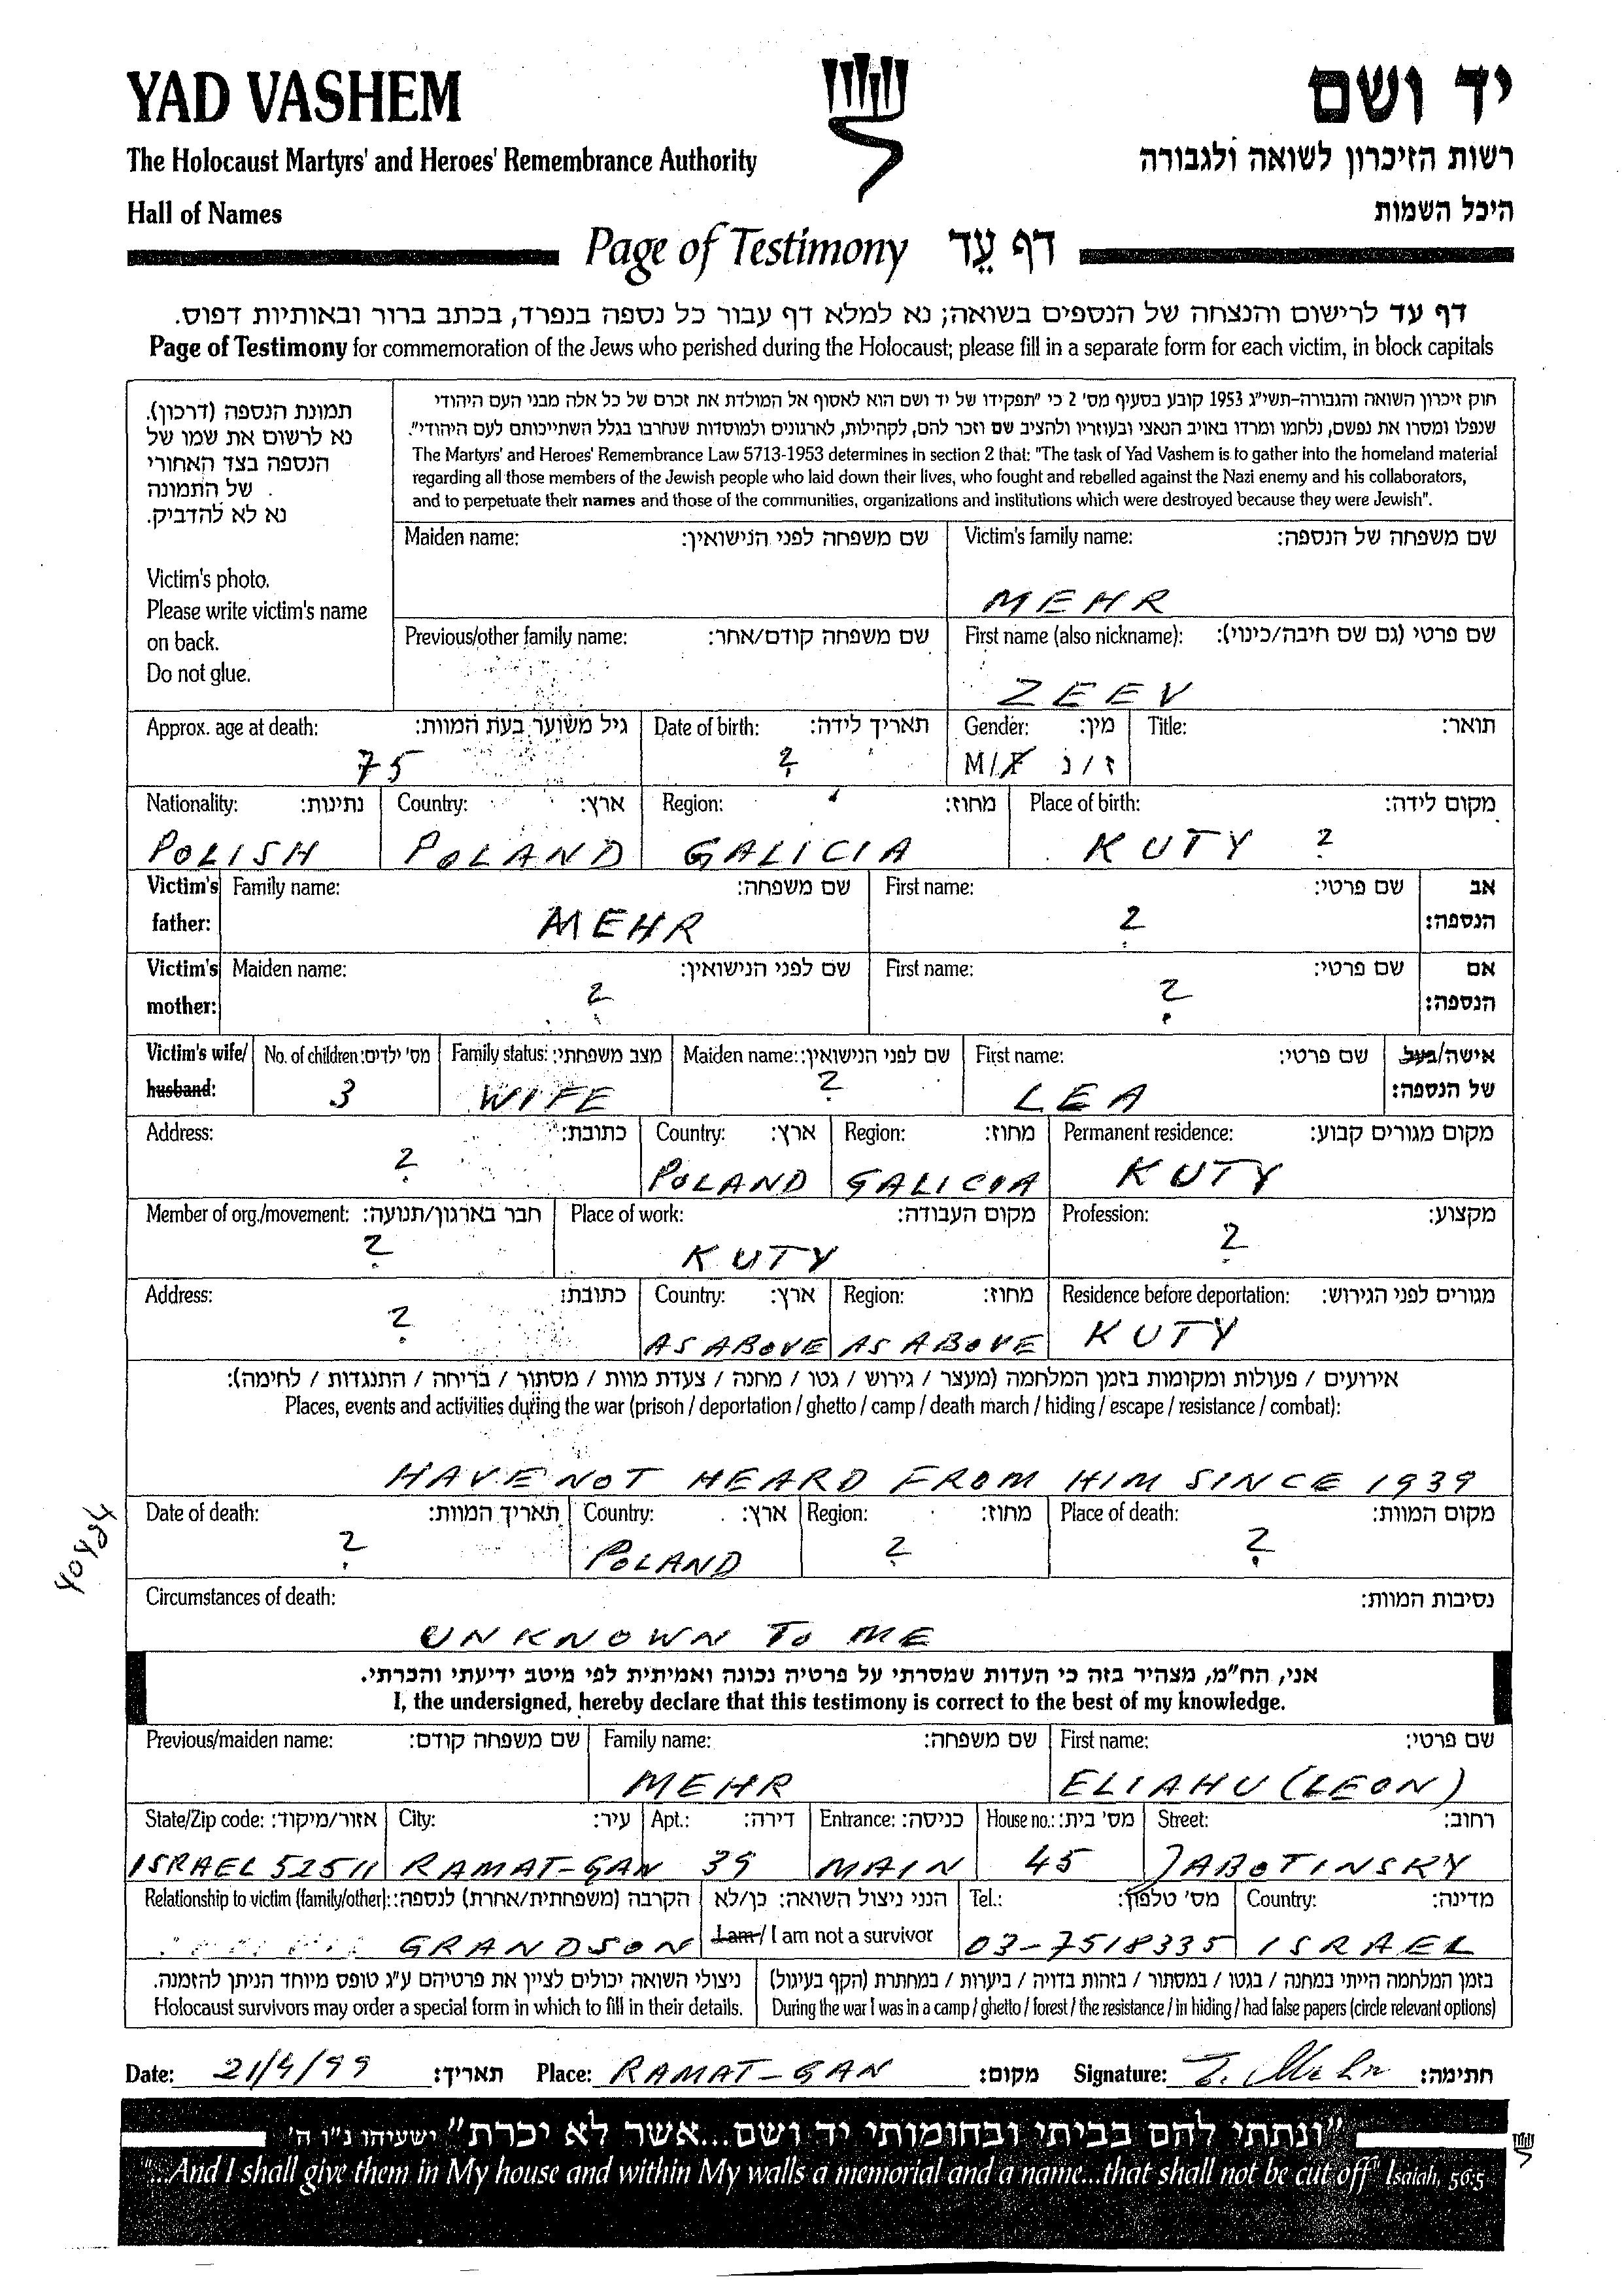 YAD VASHEM
יד ושם
The Holocaust Martyrs' and Heroes' Remembrance Authority
רשות הזיכרון לשואה ולגבורה
Hall of Names
היכל השמות
Page of Testimony דף עֵד
דף עד לרישום והנצחה של הנספים בשואה; נא למלא דף עבור כל נספה בנפרד, בכתב ברור ובאותיות דפוס.
Page of Testimony for commemoration of the Jews who perished during the Holocaust; please fill in a separate form for each victim, in block capitals
תמונת הנספה (דרכון).
נא לרשום את שמו של
הנספה בצד האחורי
של התמונה
נא לא להדביק.
Victim's photo.
Please write victim's name
on back.
Do not glue.
חוק זיכרון השואה והגבורה-תשי"ג 1953 קובע בסעיף מס' 2 כי "תפקידו של יד ושם הוא לאסוף אל המולדת את זכרם של כל אלה מבני העם היהודי
שנפלו ומסרו את נפשם, נלחמו ומרדו באויב הנאצי ובעוזריו ולהציב שם וזכר להם, לקהילות, לארגונים ולמוסדות שנחרבו בגלל השתייכותם לעם היהודי".
The Martyrs' and Heroes' Remembrance Law 5713-1953 determines in section 2 that: "The task of Yad Vashem is to gather into the homeland material
regarding all those members of the Jewish people who laid down their lives, who fought and rebelled against the Nazi enemy and his collaborators,
and to perpetuate their names and those of the communities, organizations and institutions which were destroyed because they were Jewish".
Maiden name: שם משפחה לפני הנישואין:
Victim's family name: שם משפחה של הנספה:
MEHR
Previous/other family name: שם משפחה קודם/אחר:
First name (also nickname): שם פרטי (גם שם חיבה/כינוי):
ZEEV
Approx. age at death: גיל משוער בעת המוות: Date of birth: תאריך לידה: Gender: מין: Title: תואר:
75 ? M/F ז/נ
Nationality: נתינות: Country: ארץ: Region: מחוז: Place of birth: מקום לידה:
POLISH POLAND GALICIA KUTY ?
Victim's father: Family name: שם משפחה: First name: שם פרטי: אב הנספה:
MEHR ?
Victim's mother: Maiden name: שם לפני הנישואין: First name: שם פרטי: אם הנספה:
? ?
Victim's wife/husband: No. of children: מס' ילדים: Family status: מצב משפחתי: Maiden name: שם לפני הנישואין: First name: שם פרטי: אישה/בעל של הנספה:
3 WIFE ? LEA
Address: כתובת: Country: ארץ: Region: מחוז: Permanent residence: מקום מגורים קבוע:
? POLAND GALICIA KUTY
Member of org./movement: חבר בארגון/תנועה: Place of work: מקום העבודה: Profession: מקצוע:
? KUTY ?
Address: כתובת: Country: ארץ: Region: מחוז: Residence before deportation: מגורים לפני הגירוש:
? AS ABOVE AS ABOVE KUTY
אירועים / פעולות ומקומות בזמן המלחמה (מעצר / גירוש / גטו / מחנה / צעדת מוות / מסתור / בריחה / התנגדות / לחימה):
Places, events and activities during the war (prison / deportation / ghetto / camp / death march / hiding / escape / resistance / combat):
HAVE NOT HEARD FROM HIM SINCE 1939
Date of death: תאריך המוות: Country: ארץ: Region: מחוז: Place of death: מקום המוות:
? POLAND ? ?
Circumstances of death: נסיבות המוות:
UNKNOWN TO ME
אני, הח"מ, מצהיר בזה כי העדות שמסרתי על פרטיה נכונה ואמיתית לפי מיטב ידיעתי והכרתי.
I, the undersigned, hereby declare that this testimony is correct to the best of my knowledge.
Previous/maiden name: שם משפחה קודם: Family name: שם משפחה: First name: שם פרטי:
MEHR ELIAHU (LEON)
State/Zip code: אזור/מיקוד: City: עיר: Apt.: דירה: Entrance: כניסה: House no.: מס' בית: Street: רחוב:
ISRAEL 52511 RAMAT-GAN 39 MAIN 45 JABOTINSKY
Relationship to victim (family/other): הקרבה (משפחתית/אחרת) לנספה: הנני ניצול השואה: כן/לא Tel.: מס' טלפון: Country: מדינה:
GRANDSON I am/ I am not a survivor 03-7518335 ISRAEL
ניצולי השואה יכולים לציין את פרטיהם ע"ג טופס מיוחד הניתן להזמנה.
Holocaust survivors may order a special form in which to fill in their details.
בזמן המלחמה הייתי במחנה / בגטו / במסתור / בזהות בדויה / ביערות / במחתרת (הקף בעיגול)
During the war I was in a camp / ghetto / forest / the resistance / in hiding / had false papers (circle relevant options)
Date: 21/4/99 תאריך: Place: RAMAT-GAN מקום: Signature: חתימה:
"ונתתי להם בביתי ובחומותי יד ושם...אשר לא יכרת" ישעיהו נ"ו ה'
"...And I shall give them in My house and within My walls a memorial and a name...that shall not be cut off" Isaiah, 56:5